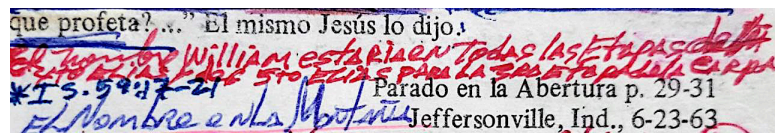 que profeta? ..." El mismo Jesús lo dijo.
El nombre William estaria en Todas las Etapas de la
5to ELIAS PARA LA 3RA ETapa de la CARPA
*IS. 59:17-21 Parado en la Abertura p. 29-31
EL Nombre en La Montaña Jeffersonville, Ind., 6-23-63